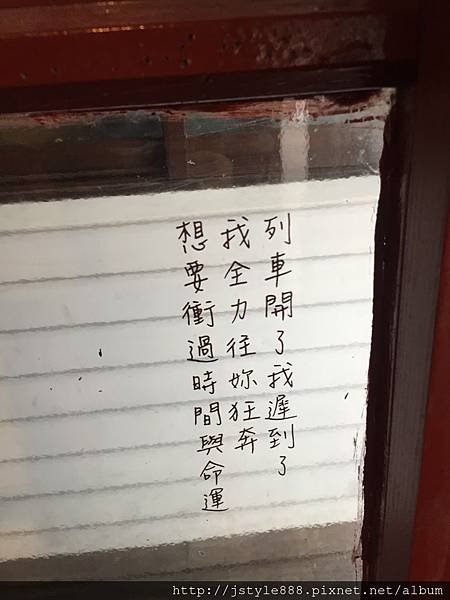 列車開了我遲到了
我全力往妳狂奔
想要衝過時間與命運
http://jstyle888.pixnet.net/album